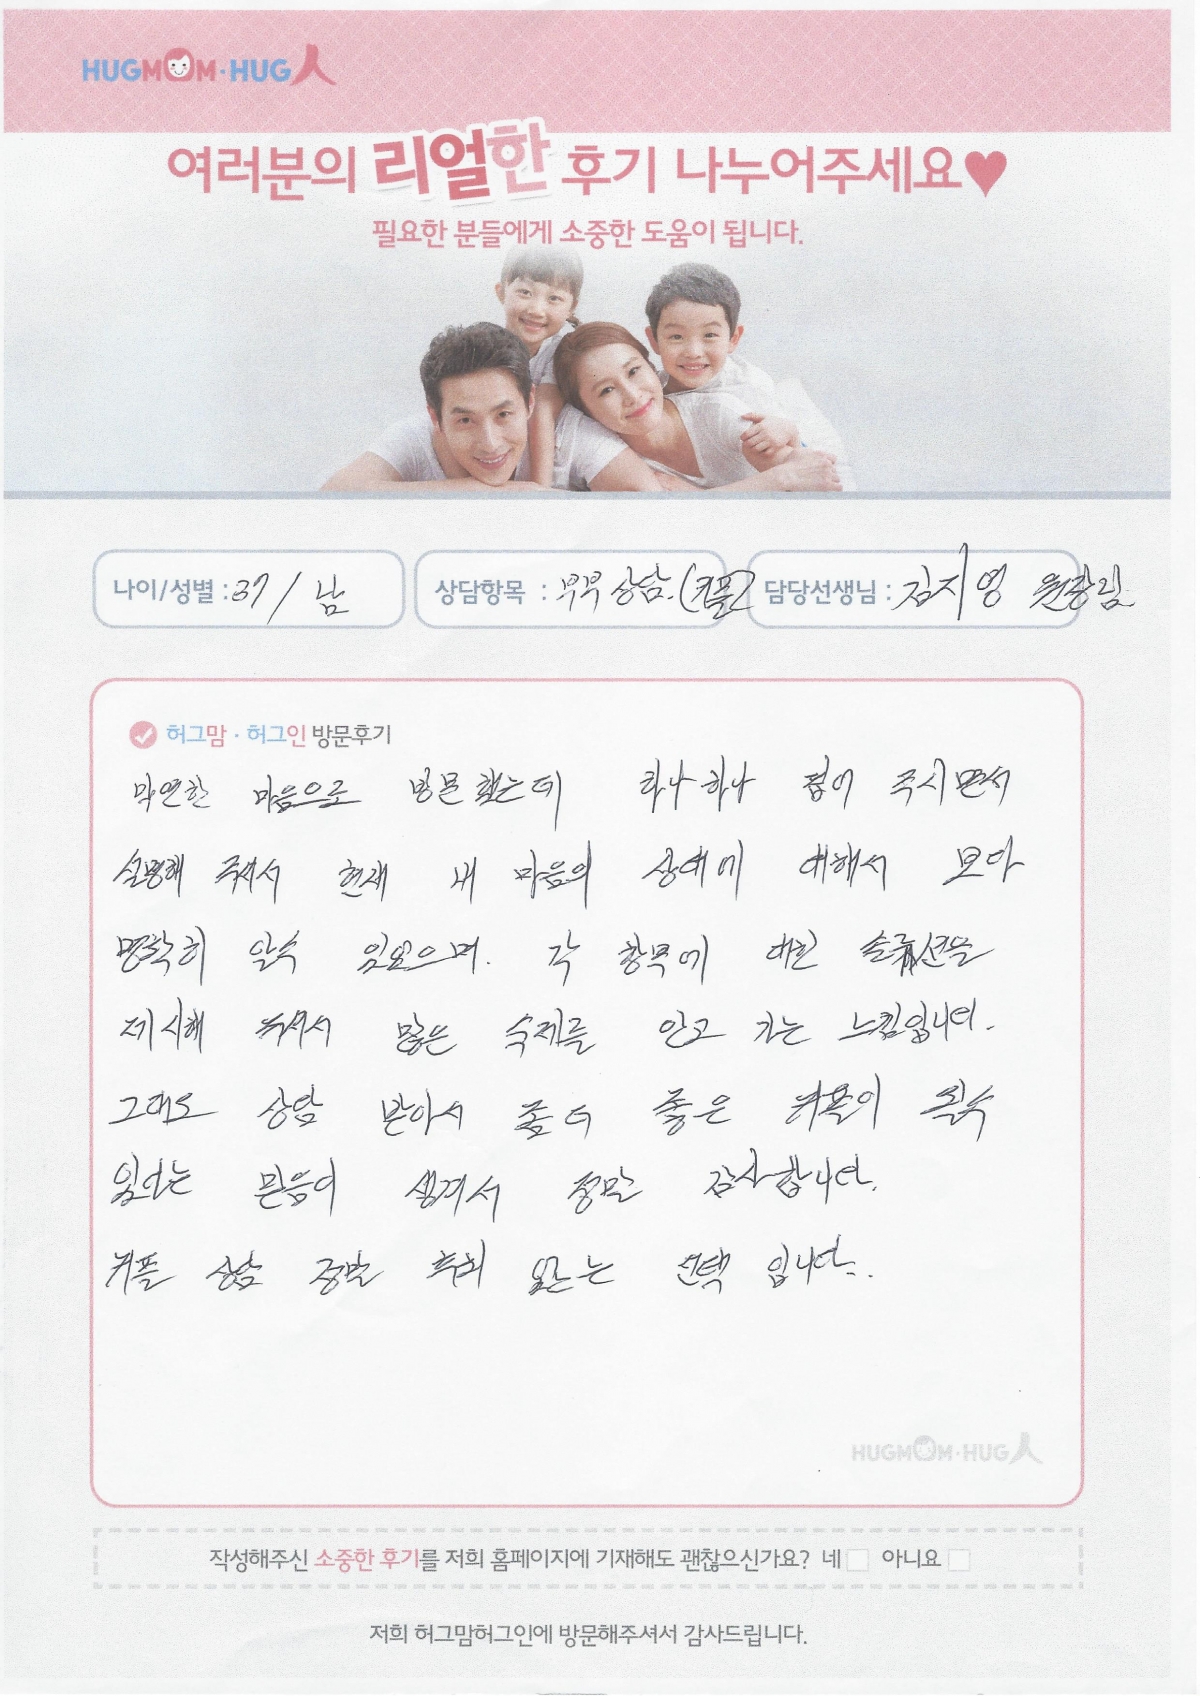 HUGMOM·HUG人
여러분의 리얼한 후기 나누어주세요♥
필요한 분들에게 소중한 도움이 됩니다.
나이/성별 : 37 / 남
상담항목 : 부부상담.(커플)
담당선생님 : 김지영 원장님
허그맘·허그인 방문후기
막연한 마음으로 방문했는데 하나하나 짚어 주시면서
설명해 주셔서 현재 내 마음의 상태에 대해서 보다
명확히 알수 있었으며. 각 항목에 대한 솔루션을
제시해 주셔서 많은 숙제를 안고 가는 느낌입니다.
그래도 상담 받아서 좀더 좋은 커플이 될수
있다는 믿음이 생겨서 정말 감사합니다.
커플 상담 정말 후회 없는 선택 입니다..
HUGMOM·HUG人
작성해주신 소중한 후기를 저희 홈페이지에 기재해도 괜찮으신가요? 네 아니요
저희 허그맘허그인에 방문해주셔서 감사드립니다.